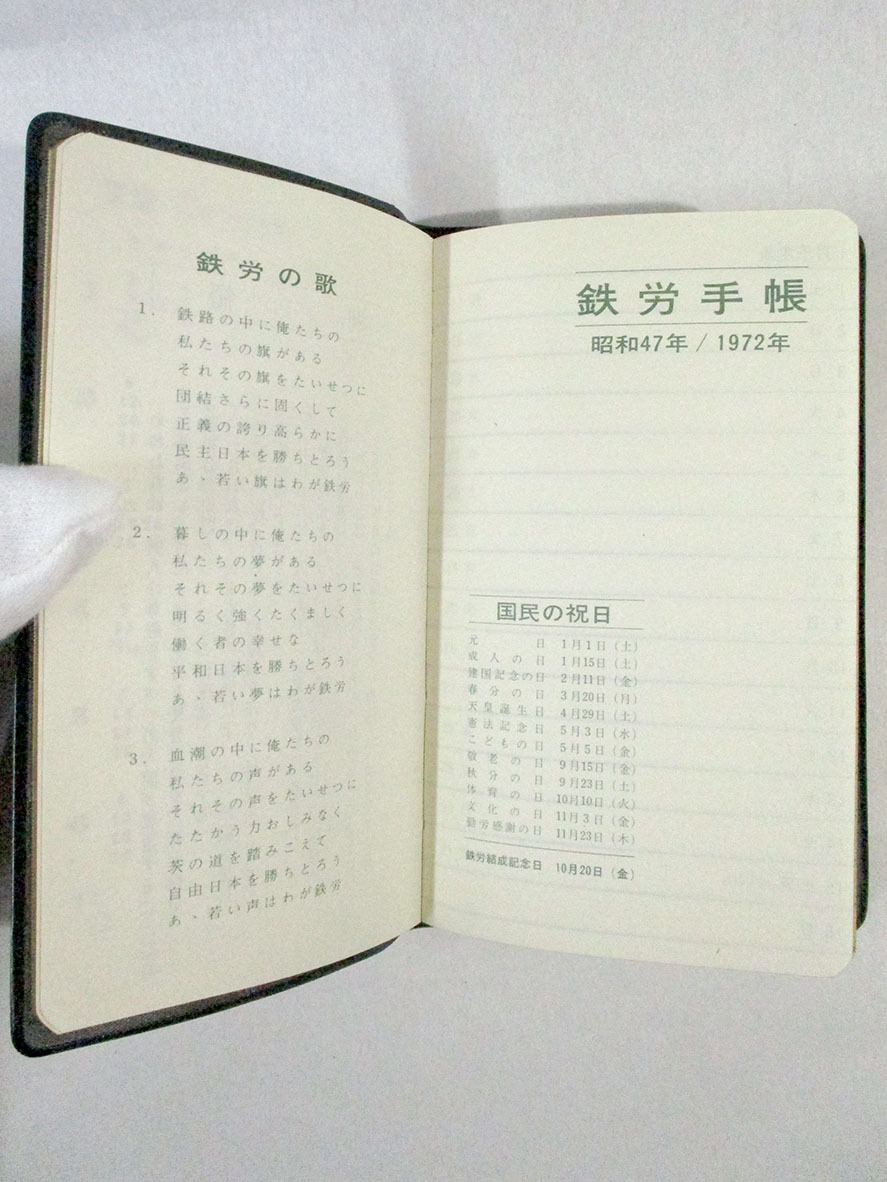 鉄労の歌
1. 鉄路の中に俺たちの
私たちの旗がある
それその旗をたいせつに
団結さらに固くして
正義の誇り高らかに
民主日本を勝ちとろう
あゝ若い旗はわが鉄労
2. 暮しの中に俺たちの
私たちの夢がある
それその夢をたいせつに
明るく強くたくましく
働く者の幸せな
平和日本を勝ちとろう
あゝ若い夢はわが鉄労
3. 血潮の中に俺たちの
私たちの声がある
それその声をたいせつに
たたかう力おしみなく
茨の道を踏みこえて
自由日本を勝ちとろう
あゝ若い声はわが鉄労
鉄労手帳
昭和47年/1972年
国民の祝日
元日 1月1日(土)
成人の日 1月15日(土)
建国記念の日 2月11日(金)
春分の日 3月20日(月)
天皇誕生日 4月29日(土)
憲法記念日 5月3日(水)
こどもの日 5月5日(金)
敬老の日 9月15日(金)
秋分の日 9月23日(土)
体育の日 10月10日(火)
文化の日 11月3日(金)
勤労感謝の日 11月23日(木)
鉄労結成記念日 10月20日(金)